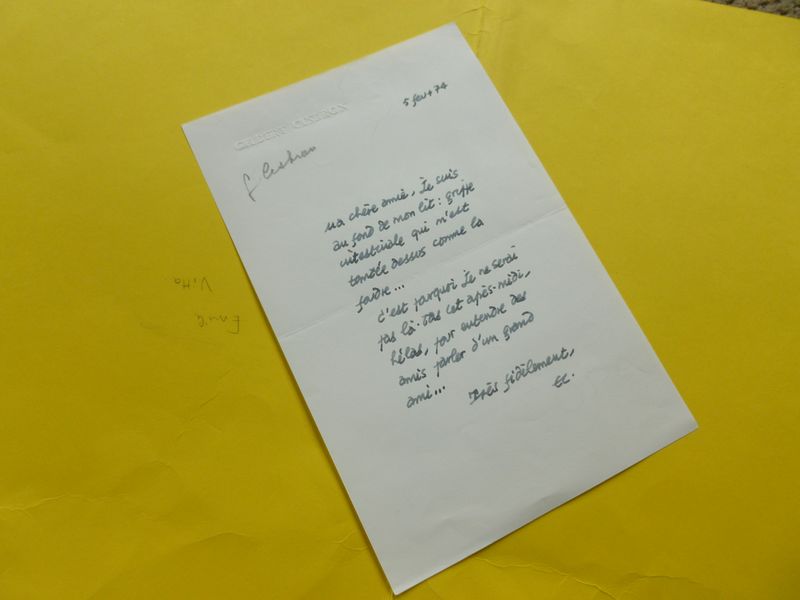 GILBERT CESBRON
5 fev 74
G Cesbron
ma chère amie, Je suis
au fond de mon lit : grippe
intestinale qui m'est
tombée dessus comme la
foudre...
c'est pourquoi Je ne serai
pas là-bas cet après-midi,
hélas, pour entendre des
amis parler d'un grand
ami...
Très fidèlement,
GC.